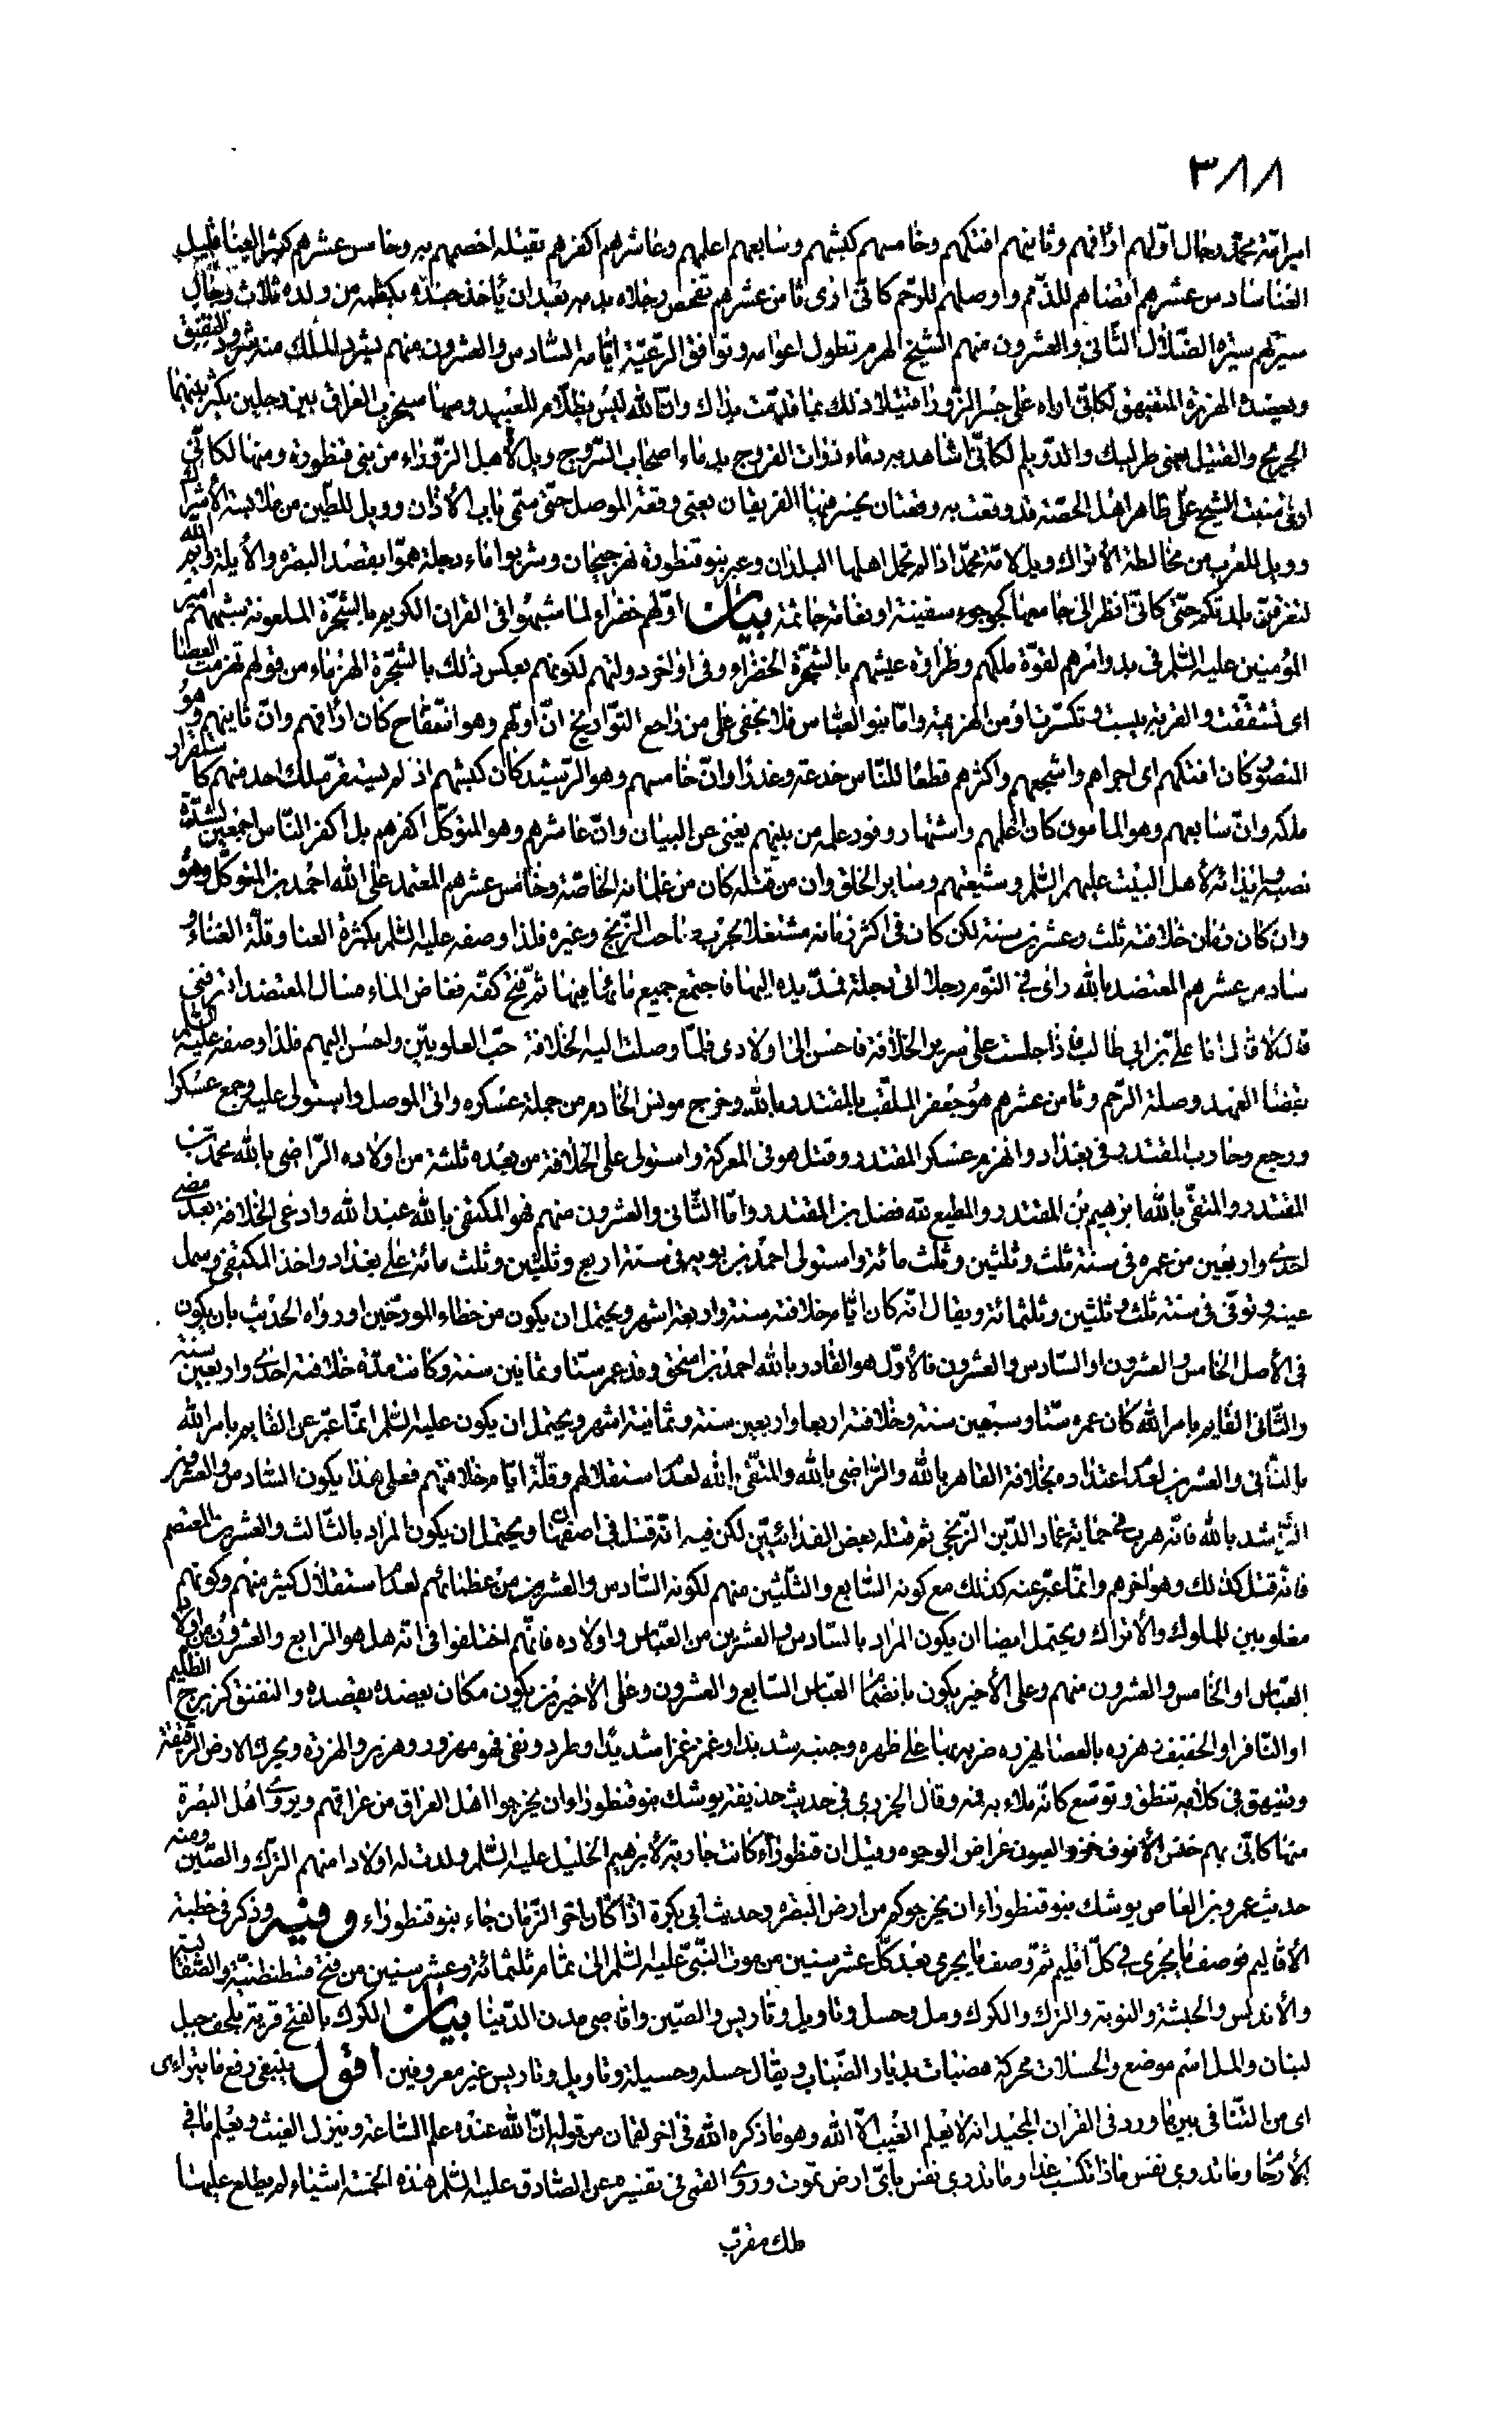 ٣٨٨
امر امّة محمّد رجال اوّلهم ارأفهم وثانيهم افتكهم وخامسهم كبشهم وسابعهم اعلمهم وعاشرهم اكفرهم يقتله اخصهم به وخامس عشرهم كثير العنا قليل
الغنا سادس عشرهم اقضاهم للذمم واوصلهم للرّحم كانّى ارى ثامن عشرهم تفحص رجلاه بدمه بعد ان يأخذ جنده بكظمه من ولده ثلاث رجال
سيرتهم سيرة الضّلال الثّانى والعشرون منهم الشيخ الهرم تطول اعوامه وتوافق الرّعيّة ايّامه السّادس والعشرون منهم يشرد الملك منه شرود النقنق
ويعضده الهزرة المتفيهق لكانّى اراه على جسر الزّوراء قتيلا ذلك بما قدّمت يداك وانّ الله ليس بظلّام للعبيد ومنها سيخرب العراق بين رجلين يكثر بينهما
الجريح والقتيل يعنى طرليك والدّويلم لكانّى اشاهد به دماء ذوات الفروج بدماء اصحاب السّروج ويل لأهل الزّوراء من بنى قنطورة ومنها لكانّى
ارى منبت الشيح على ظاهر اهل الحصّة قد وقعت به وقعتان يخسر منها الفريقان يعنى وقعة الموصل حتّى سمّى باب الأذان وويل للطّين من ملابسة الأشراك
وويل للعرب من مخالطة الأتراك ويل لامّة محمّد اذا لم تحمل اهلها البلدان وعبر بنو قنطورة نهر جيحان وشربوا ماء دجلة همّوا بقصد البصره والأيلة وايم الله
لتعرفنّ بلدتكم حتّى كانّى انظر الى جامعها كجؤجؤ سفينة او نعامة جاثمة بيان اوّلهم خضراء لما شبّهوا فى القران الكريم بالشجرة الملعونة شبههم امير
المؤمنين عليه السّلم فى بدو امرهم لقوّة ملكهم وطراوة عيشهم بالشّجرة الخضراء وفى اواخر دولتهم لكونهم بعكس ذلك بالشّجرة الهزماء من قولهم تهزمت العصا
اى تشقّقت والقربة يبست وتكسّرت او من الهزيمة وامّا بنو العبّاس فلا يخفى على من راجع التّواريخ انّ اوّلهم وهو السّفّاح كان ارأفهم وانّ ثانيهم وهو
المنصور كان افتكهم اى اجراهم واشجعهم واكثرهم قطعا للنّاس خدعة وغدرا وانّ خامسهم وهو الرّشيد كان كبشهم اذ لم يستقرّ ملك احد منهم كاستقرار
ملكه وانّ سابعهم وهو المامون كان اعلمهم واشتهار وفور علمه من بينهم يغنى عن البيان وانّ عاشرهم وهو المتوكّل اكفرهم بل اكفر النّاس اجمعين لشدّة
نصبه وايذائه لأهل البيت عليهم السّلم وشيعتهم وساير الخلق وان من قتله كان من غلمانه الخاصّة وخامس عشرهم المعتمد على الله احمد بن المتوكّل وهو
وان كان زمان خلافته ثلث وعشرين سنة لكن كان فى اكثر زمانه مشتغلا بحرب صاحب الزّنج وغيره فلذا وصفه عليه السّلم بكثرة العنا وقلّة الغناء و
سادس عشرهم المعتضد بالله راى فى النّوم رجلا اتى دجلة فمدّ يده اليها فاجتمع جميع مائها فيها ثمّ فتح كفّه ففاض الماء فسال المعتضد اتعرفنى
قال لا قال انا علىّ بن ابى طالب فاذا جلست على سرير الخلافة فاحسن الى اولادى فلمّا وصلت اليه الخلافة حبّ العلويّين واحسن اليهم فلذا وصفه عليه السّلم
بقضاء العهد وصلة الرّحم وثامن عشرهم هو جعفر الملقّب بالمقتدر بالله وخرج مونس الخادم من جملة عسكره واتى الموصل واستولى عليه وجمع عسكرا
ورجع وحارب المقتدر فى بغداد وانهزم عسكر المقتدر وقتل هو فى المعركة واستولى على الخلافة من بعده ثلثة من اولاده الرّاضى بالله محمّد بن
المقتدر والمتّقى بالله ابرهيم بن المقتدر والمطيع لله فضل بن المقتدر وامّا الثّانى والعشرون منهم فهو المكتفى بالله عبد الله وادعى الخلافة بعد مضى
احدى واربعين من عمره فى سنة ثلث وثلثين وثلث مائة واستولى احمد بن بويه فى سنة اربع وثلثين وثلث مائة على بغداد واخذ المكتفى وسمل
عينه وتوفّى فى سنة ثلث وثلثين وثلثمائة ويقال انّه كان ايّام خلافته سنة واربعة اشهر ويحتمل ان يكون من خطاء المورّخين او رواة الحديث بان يكون
فى الأصل الخامس والعشرون او السّادس والعشرون فالأوّل هو القادر بالله احمد بن اسحق وقد عمر ستّا وثمانين سنة وكانت مدّة خلافته احدى واربعين سنة
والثّانى القايم بامر الله كان عمره ستّا وسبعين سنة وخلافته اربعا واربعين سنة وثمانية اشهر ويحتمل ان يكون عليه السّلم انّما عبّر عن القايم بامر الله
بالثّانى والعشرين لعدم اعتداده بخلافة القاهر بالله والرّاضى بالله والمتّقى بالله لعدم استقلالهم وقلّة ايّام خلافتهم فعلى هذا يكون السّادس والعشرون
الرّاشد بالله فانّه هرب فى حماية عماد الدّين الزّنجى ثم قتله بعض الفدائيّين لكن فيه انّه قتل فى اصفهان ويحتمل ان يكون المراد بالثّالث والعشرين المعتصم
فانّه قتل كذلك وهو اخرهم وانّما عبّر عنه كذلك مع كونه السّابع والثّلثين منهم لكونه السّادس والعشرين من عظمائهم لعدم استقلال كثير منهم وكونهم
مغلوبين للملوك والأتراك ويحتمل ايضا ان يكون المراد بالسّادس والعشرين من العبّاس واولاده فانّهم اختلفوا فى انّه هل هو الرّابع والعشرون من اولاد
العبّاس او الخامس والعشرون منهم وعلى الأخير يكون بانضمام العبّاس السّابع والعشرون وعلى الأخيرين يكون مكان يعضده يقصده والنقنق كزبرج الظليم
او النّافر او الخفيف وهزره بالعصا يهزره ضربه بها على ظهره وجنبه شديدا وغمز غمزا شديدا وطرد ونفى فهو مهزور وهزير والهزرة ويحرك الارض الرّقيقة
وتفيهق فى كلامه تنطق وتوسّع كانّه ملاء به فمه وقال الجزرى فى حديث حذيفة يوشك بنو قنطورا وان يخرجوا اهل العراق من عراقهم ويروى اهل البصرة
منها كانّى بهم خنس الأنوف خزر العيون عراض الوجوه وقيل ان قنطوراء كانت جارية لأبرهيم الخليل عليه السّلم ولدت له اولادا منهم الترك والصّين ومنه
حديث عمرو بن العاص يوشك بنو قنطوراء ان يخرجوكم من ارض البصره وحديث ابى بكرة اذا كان اخر الزّمان جاء بنو قنطوراء وفيه وذكر فى خطبة
الأقاليم فوصف ما يجرى فى كلّ اقليم ثمّ وصف ما يجرى بعد كلّ عشر سنين من موت النّبىّ عليه السّلم الى تمام ثلثمائة وعشر سنين من فتح قسطنطنيّة والصّقالبة
والأندلس والحبشة والنوبة والترك والكرك ومل وحسل وتاويل وتاريس والصّين واقاصى مدن الدّنيا بيان الكرك بالفتح قرية بلحف جبل
لبنان والمل اسم موضع والحسلات محركة هضبات بديار الضّباب ويقال حسله وحسيلة وتاويل وتاريس غير معروفين اقول ينبغى رفع ما يتراءى
اى من التّنافى بين ما ورد فى القران المجيد انه لا يعلم الغيب الّا الله وهو ما ذكره الله فى اخر لقمان من قوله انّ الله عنده علم السّاعة وينزل الغيث ويعلم ما فى
الأرحام وما تدرى نفس ماذا تكسب غدا وما تدرى نفس باىّ ارض تموت وروى القمى فى تفسيره عن الصّادق عليه السّلم هذه الخمسة اشياء لم يطلع عليها
ملك مقرّب